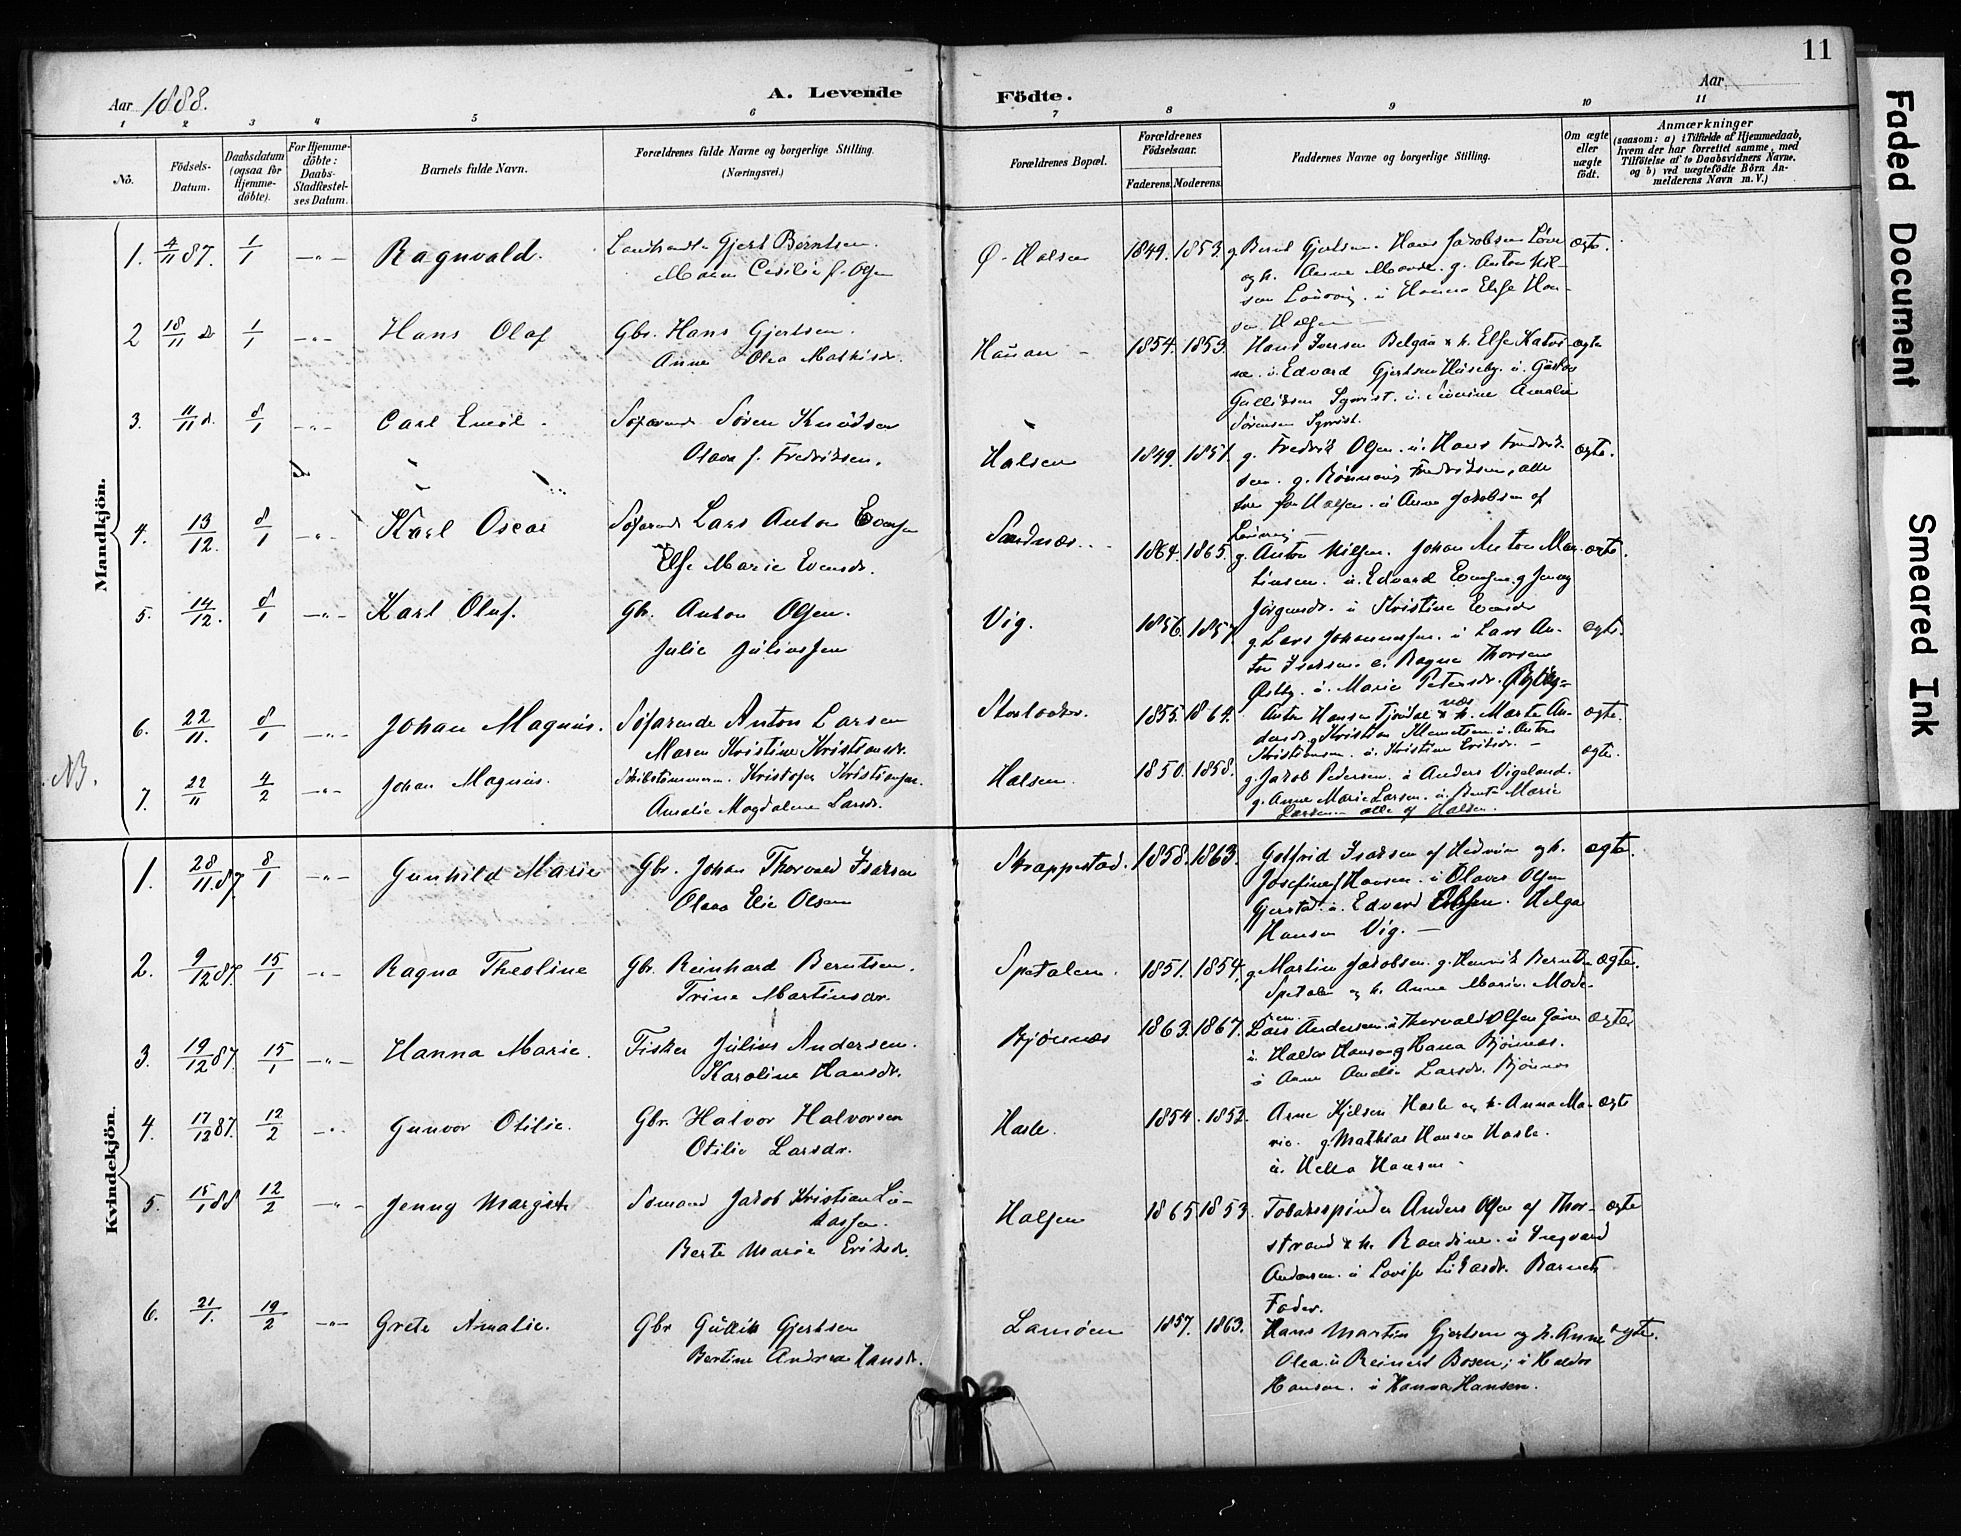 11
Aar 1888.
A. Levende Födte.
Aar
1 2 3 4 5 6 7 8 9 10 11
No.
Födsels-Datum.
Daabsdatum (ogsaa for Hjemmedöbte).
For Hjemmedöbte: Daabs-Stadfæstelses Datum.
Barnets fulde Navn.
Forældrenes fulde Navne og borgerlige Stilling.
(Næringsvei.)
Forældrenes Bopæl.
Forældrenes Födselsaar.
Faderens. Moderens.
Faddernes Navne og borgerlige Stilling.
Om ægte eller uægte födt.
Anmærkninger
(saasom: a) i Tilfælde af Hjemmedaab, hvem der har forrettet samme, med Tilföielse af to Daabsvidners Navne, og b) ved uægtefödte Börn Anmelderens Navn m. V.)
Mandkjön.
1. 4/11 87. 1/1 —„— Ragnvald. Gjert Berntsen. Ø. Halsen 1849. 1853. g. Bernt Gjertsen. Hans Jakobsen ægte.
Maren Cecilie f. Olsen
og h. Anne g. Anton Nil-
sen u Hanna Else Han-
2 18/11 d 1/1 —„— Hans Olaf Gbr. Hans Gjertsen. Hauan 1854. 1853. Hans Iversen & h. Else ægte
Anne Olea Mathisdr.
u. Edvard Gjertsen Huseby. u. Gustav
Gulliksen u. Amalie
Sørensen
3. 11/11 d. 8/1 —„— Carl Emil. Søfarende Søren Knudsen Halsen 1849. 1851. g. Fredrik Olsen. u. Hans Fredrik- ægte.
Olava f. Fredriksen.
sen. g. Fredriksen, alle
u Anne Jakobsen af
4. 13/12. 8/1 —„— Karl Oscar Søfarende Lars Anton Evensen Sandnæs 1864. 1865. g. Anton Nilsen. Johan Anton Mar- ægte.
Else Marie Evensdr.
tinsen. u. Edvard Evensen. g Jenny
Jørgensdr. u Kristine
5. 14/12. 8/1 —„— Karl Olaf. Gbr. Anton Olsen. Vig. 1856. 1857. g. Lars Johannessen. u Lars An- ægte.
Julie Juliussen
ton Isaksen. u. Ragna Thorsen
Østby. u. Marie Petersdr.
6. 22/11. 8/1 —„— Johan Magnus. Søfarende Anton Larsen 1855. 1864. Anton Hansen & h. Marte An- ægte.
Maren Kristine Kristiansdr.
g Kristian Klemetsen. u. Anton
Kristiansen. u. Kristine Eriksdr. —
NB. 7. 22/11 4/2 —„— Johan Magnus. Skibstømmerm. Kristofer Kristiansen. Halsen. 1850. 1858. g. Jakob Pedersen. u Anders Vigeland. ægte.
Amalie Magdalene Larsdr.
g. Anne Marie Larsen. u. Bente Marie
Larsen alle af Halsen.
Kvindekjön.
1. 28/11.87. 8/1 —„— Gunhild Marie Gbr. Johan Thorvald Isaksen Skrappestad. 1858. 1863. Gotfrid Isaksen af og h. ægte.
Olava Elie Olsen
Josefine f Hansen. u Olaves Olsen
Gjerstad. u. Edvard Olsen. Helga
Hansen Vig. —
2. 9/12 87. 15/1 —„— Ragna Theoline Gbr. Reinhard Berntsen. Spetalen. 1851. 1854. g Martin Jakobsen. g. Henrik Berntsen ægte.
Trine Martinsdr.
Spetalen og h. Anne Marie.
3. 19/12 87. 15/1 —„— Hanna Marie. Fisker Julius Andersen. Bjønnæs 1863. 1867. Lars Andersen. u Thorvald Olsen ægte
Karoline Hansdr.
u. Haldor Hansen g Hanna Bjønnæs.
u Anne Amalie Larsdr. Bjønnæs
4. 17/12 87. 12/2 —„— Gunvor Otilie. Gbr. Halvor Halvorsen Hasle. 1854. 1852. Arne Kjelsen Hasle og h. Anna Ma- ægte
Otilie Larsdr.
rie. g. Mathias Hansen Hasle.
u. Hella Hansen
5. 15/1 88 12/2 —„— Jenny Margit Sømand Jakob Kristian Lu- Halsen 1865 1853. Tobaksspinder Anders Olsen af Thor- ægte
kassen.
Berte Marie Eriksdr.
strand & h. Randine. u
Andersen. u Lovise Barnets
Fader.
6. 21/1. 19/2 —„— Grete Amalie. Gbr Gullik Gjertsen Lamøen 1857. 1863. Hans Martin Gjertsen og h. Anne ægte.
Bertine Andrea Hansdr.
Olea. u Reinert Bosen; u Haldor
Hansen. u Hanna Hansen.
Faded Document
Smeared Ink